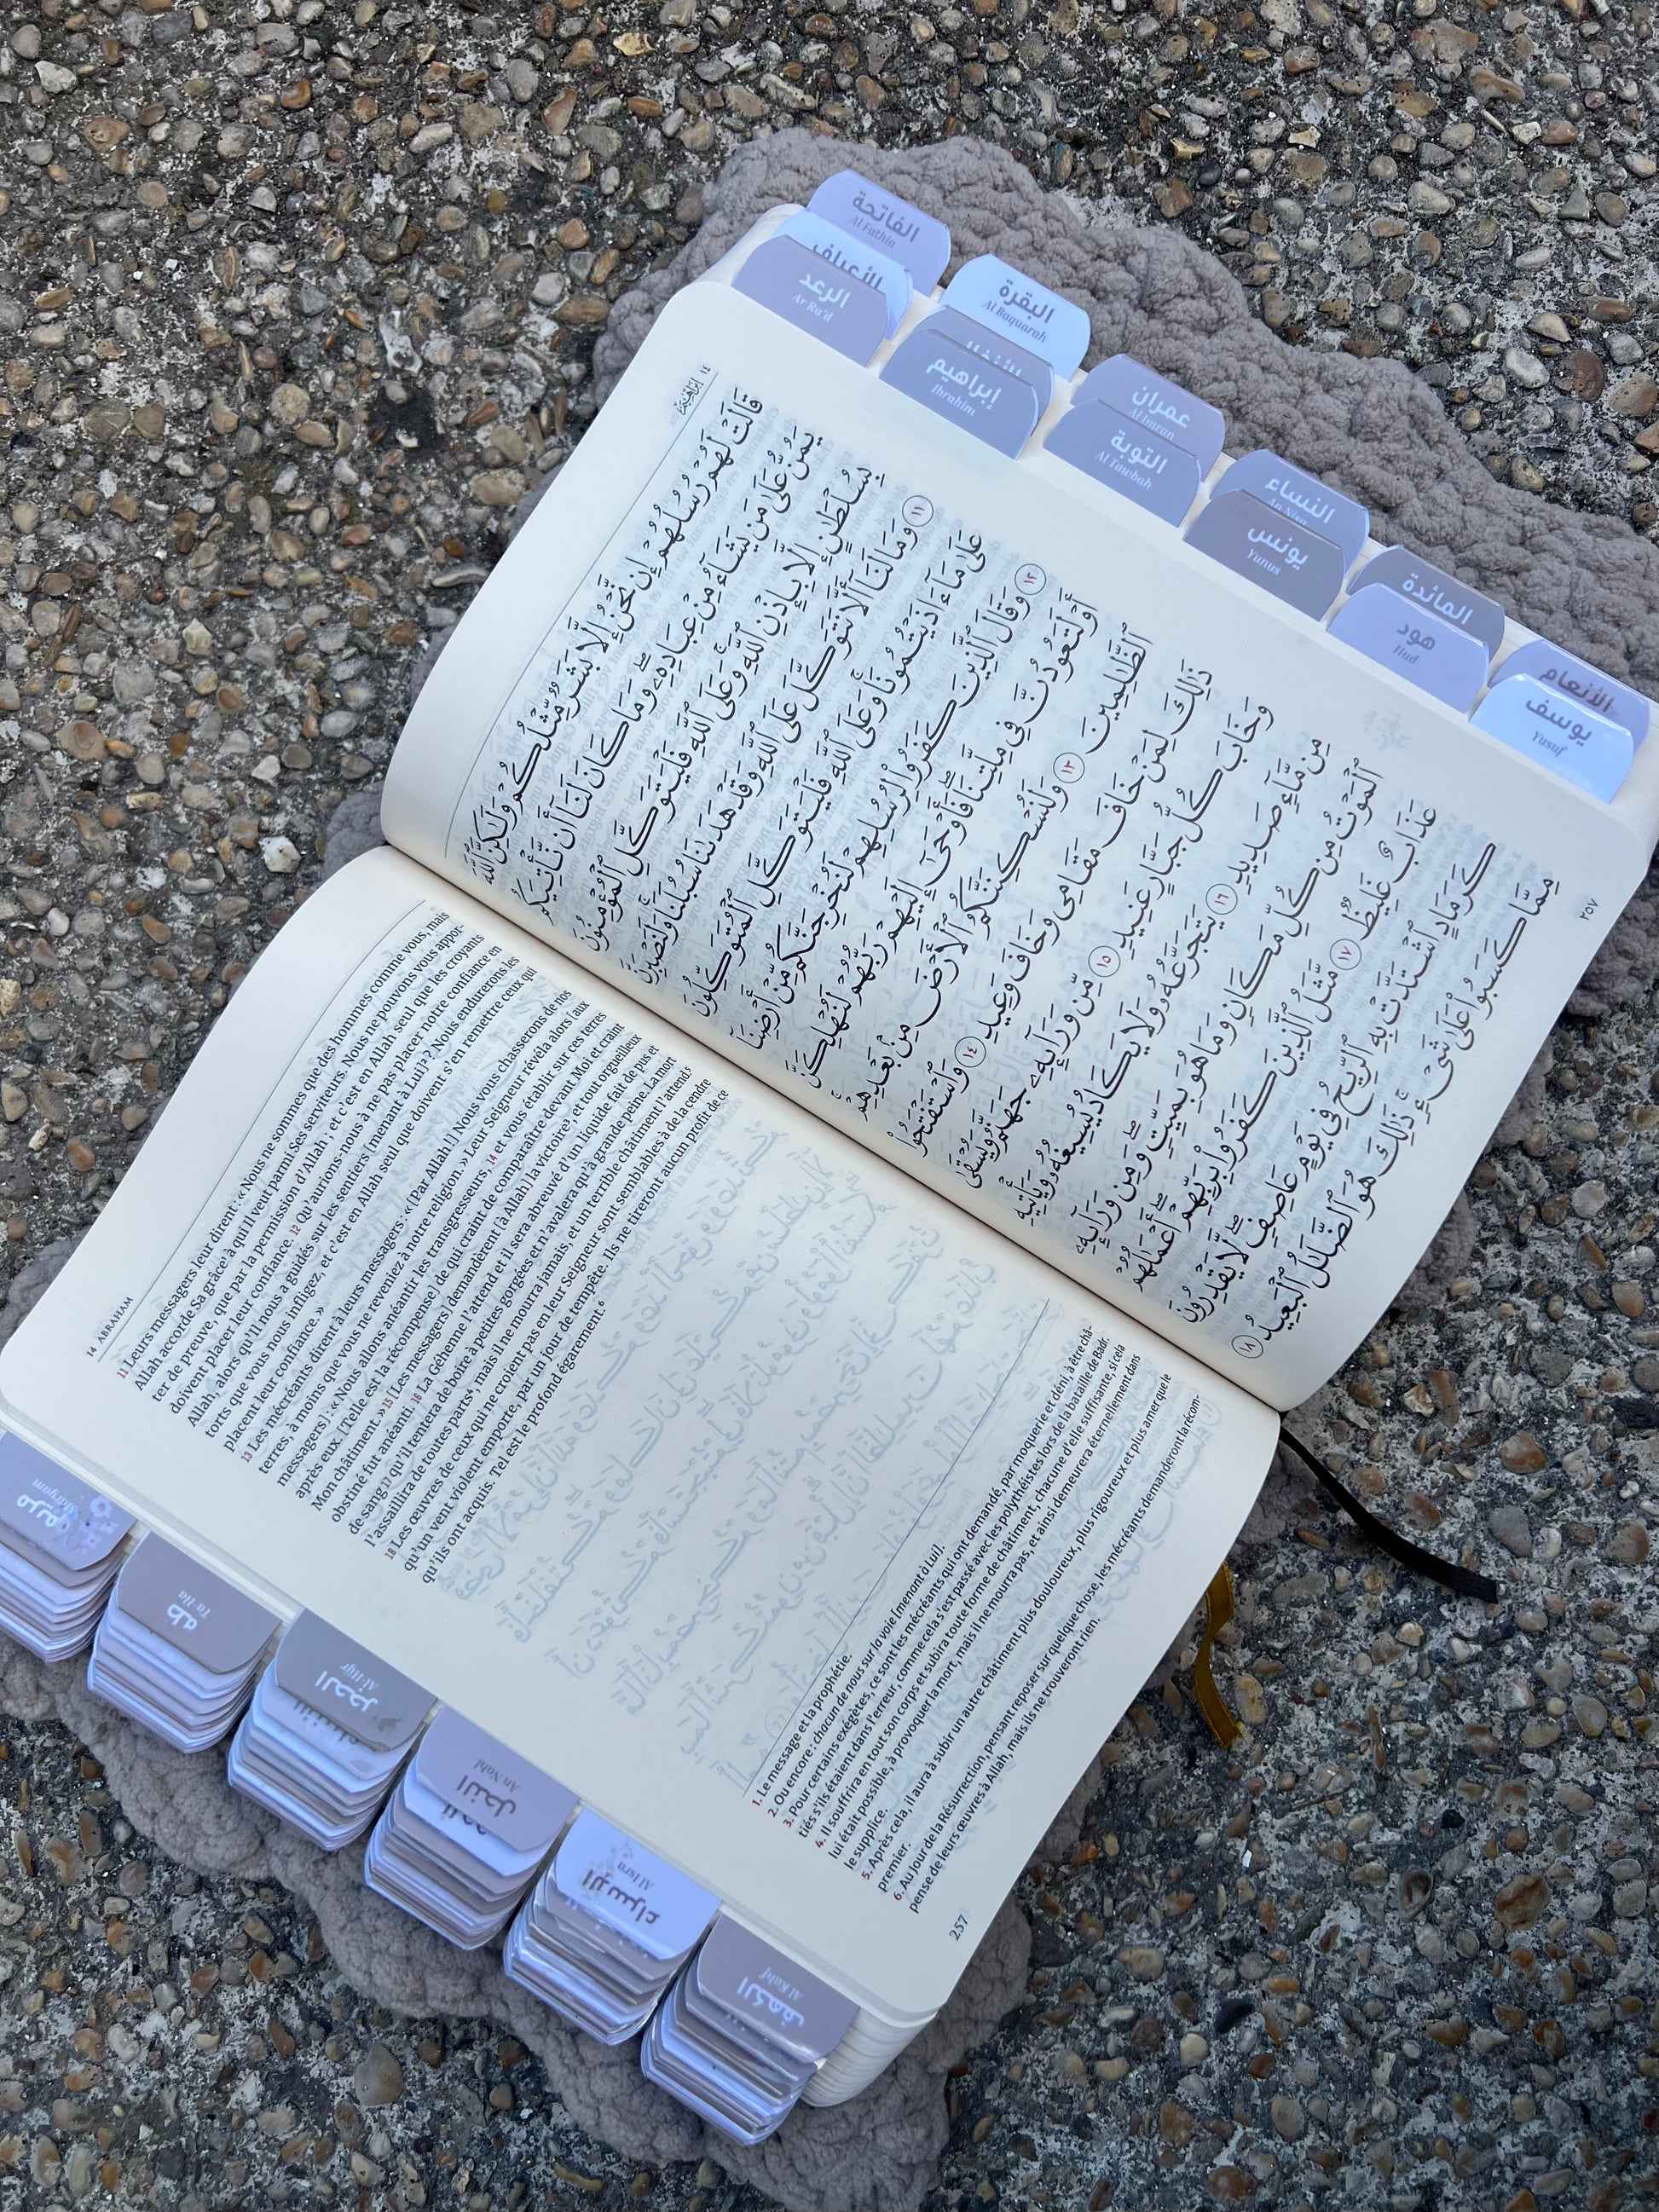 الفاتحة
Al Fathia
البقرة
Al Baquarah
عمران
Al Imran
النساء
An Nisa
المائدة
الأنعام
الأعراف
الرعد
Ar Ra'd
إبراهيم
Ibrahim
التوبة
Al Tawbah
يونس
Yunus
هود
Hud
يوسف
Yusuf
١٤ إِبْرَاهِيم
قَالَتْ لَهُمْ رُسُلُهُمْ إِن نَّحْنُ إِلَّا بَشَرٌ مِّثْلُكُمْ وَلَٰكِنَّ ٱللَّهَ
يَمُنُّ عَلَىٰ مَن يَشَآءُ مِنْ عِبَادِهِۦ ۖ وَمَا كَانَ لَنَآ أَن نَّأْتِيَكُم
بِسُلْطَٰنٍ إِلَّا بِإِذْنِ ٱللَّهِ ۚ وَعَلَى ٱللَّهِ فَلْيَتَوَكَّلِ ٱلْمُؤْمِنُونَ
١١ وَمَا لَنَآ أَلَّا نَتَوَكَّلَ عَلَى ٱللَّهِ وَقَدْ هَدَىٰنَا سُبُلَنَا ۚ وَلَنَصْبِرَنَّ
عَلَىٰ مَآ ءَاذَيْتُمُونَا ۚ وَعَلَى ٱللَّهِ فَلْيَتَوَكَّلِ ٱلْمُتَوَكِّلُونَ
١٢ وَقَالَ ٱلَّذِينَ كَفَرُوا۟ لِرُسُلِهِمْ لَنُخْرِجَنَّكُم مِّنْ أَرْضِنَآ
أَوْ لَتَعُودُنَّ فِى مِلَّتِنَا ۖ فَأَوْحَىٰٓ إِلَيْهِمْ رَبُّهُمْ لَنُهْلِكَنَّ
ٱلظَّٰلِمِينَ ١٣ وَلَنُسْكِنَنَّكُمُ ٱلْأَرْضَ مِنۢ بَعْدِهِمْ ۚ
ذَٰلِكَ لِمَنْ خَافَ مَقَامِى وَخَافَ وَعِيدِ ١٤ وَٱسْتَفْتَحُوا۟
وَخَابَ كُلُّ جَبَّارٍ عَنِيدٍ ١٥ مِّن وَرَآئِهِۦ جَهَنَّمُ وَيُسْقَىٰ
مِن مَّآءٍ صَدِيدٍ ١٦ يَتَجَرَّعُهُۥ وَلَا يَكَادُ يُسِيغُهُۥ وَيَأْتِيهِ
ٱلْمَوْتُ مِن كُلِّ مَكَانٍ وَمَا هُوَ بِمَيِّتٍ ۖ وَمِن وَرَآئِهِۦ
عَذَابٌ غَلِيظٌ ١٧ مَّثَلُ ٱلَّذِينَ كَفَرُوا۟ بِرَبِّهِمْ ۖ أَعْمَٰلُهُمْ
كَرَمَادٍ ٱشْتَدَّتْ بِهِ ٱلرِّيحُ فِى يَوْمٍ عَاصِفٍ ۖ لَّا يَقْدِرُونَ
مِمَّا كَسَبُوا۟ عَلَىٰ شَىْءٍ ۚ ذَٰلِكَ هُوَ ٱلضَّلَٰلُ ٱلْبَعِيدُ ١٨
٢٥٧
14 ABRAHAM
11 Leurs messagers leur dirent : « Nous ne sommes que des hommes comme vous, mais
Allah accorde Sa grâce¹ à qui Il veut parmi Ses serviteurs. Nous ne pouvons vous appor-
ter de preuve, que par la permission d'Allah ; et c'est en Allah seul que les croyants
doivent placer leur confiance. 12 Qu'aurions-nous à ne pas placer notre confiance en
Allah, alors qu'Il nous a guidés sur les sentiers [menant à Lui]² ? Nous endurerons les
torts que vous nous infligez, et c'est en Allah seul que doivent s'en remettre ceux qui
placent leur confiance. »
13 Les mécréants dirent à leurs messagers : « [Par Allah !] Nous vous chasserons de nos
terres, à moins que vous ne reveniez à notre religion. » Leur Seigneur révéla alors [aux
messagers] : « Nous allons anéantir les transgresseurs, 14 et vous établir sur ces terres
après eux. [Telle est la récompense] de qui craint de comparaître devant Moi et craint
Mon châtiment. » 15 [Les messagers] demandèrent [à Allah] la victoire³, et tout orgueilleux
obstiné fut anéanti. 16 La Géhenne l'attend et il sera abreuvé d'un liquide fait de pus et
de sang 17 qu'il tentera de boire à petites gorgées et n'avalera qu'à grande peine. La mort
l'assaillira de toutes parts⁴, mais il ne mourra jamais, et un terrible châtiment l'attend⁵
18 Les œuvres de ceux qui ne croient pas en leur Seigneur sont semblables à de la cendre
qu'un vent violent emporte, par un jour de tempête. Ils ne tireront aucun profit de ce
qu'ils ont acquis. Tel est le profond égarement.⁶
1. Le message et la prophétie.
2. Ou encore : chacun de nous sur la voie [menant à Lui].
3. Pour certains exégètes, ce sont les mécréants qui ont demandé, par moquerie et déni, à être châ-
tiés s'ils étaient dans l'erreur, comme cela s'est passé avec les polythéistes lors de la bataille de Badr.
4. Il souffrira en tout son corps et subira toute forme de châtiment, chacune d'elle suffisante, si cela
lui était possible, à provoquer la mort, mais il ne mourra pas, et ainsi demeurera éternellement dans
le supplice.
5. Après cela, il aura à subir un autre châtiment plus douloureux, plus rigoureux et plus amer que le
premier.
6. Au Jour de la Résurrection, pensant reposer sur quelque chose, les mécréants demanderont la récom-
pense de leurs œuvres à Allah, mais ils ne trouveront rien.
257
مريم
Maryam
طه
Ta-Ha
الحجر
Al-Hijr
النحل
An Nahl
الإسراء
Al Isra
الكهف
Al Kahf